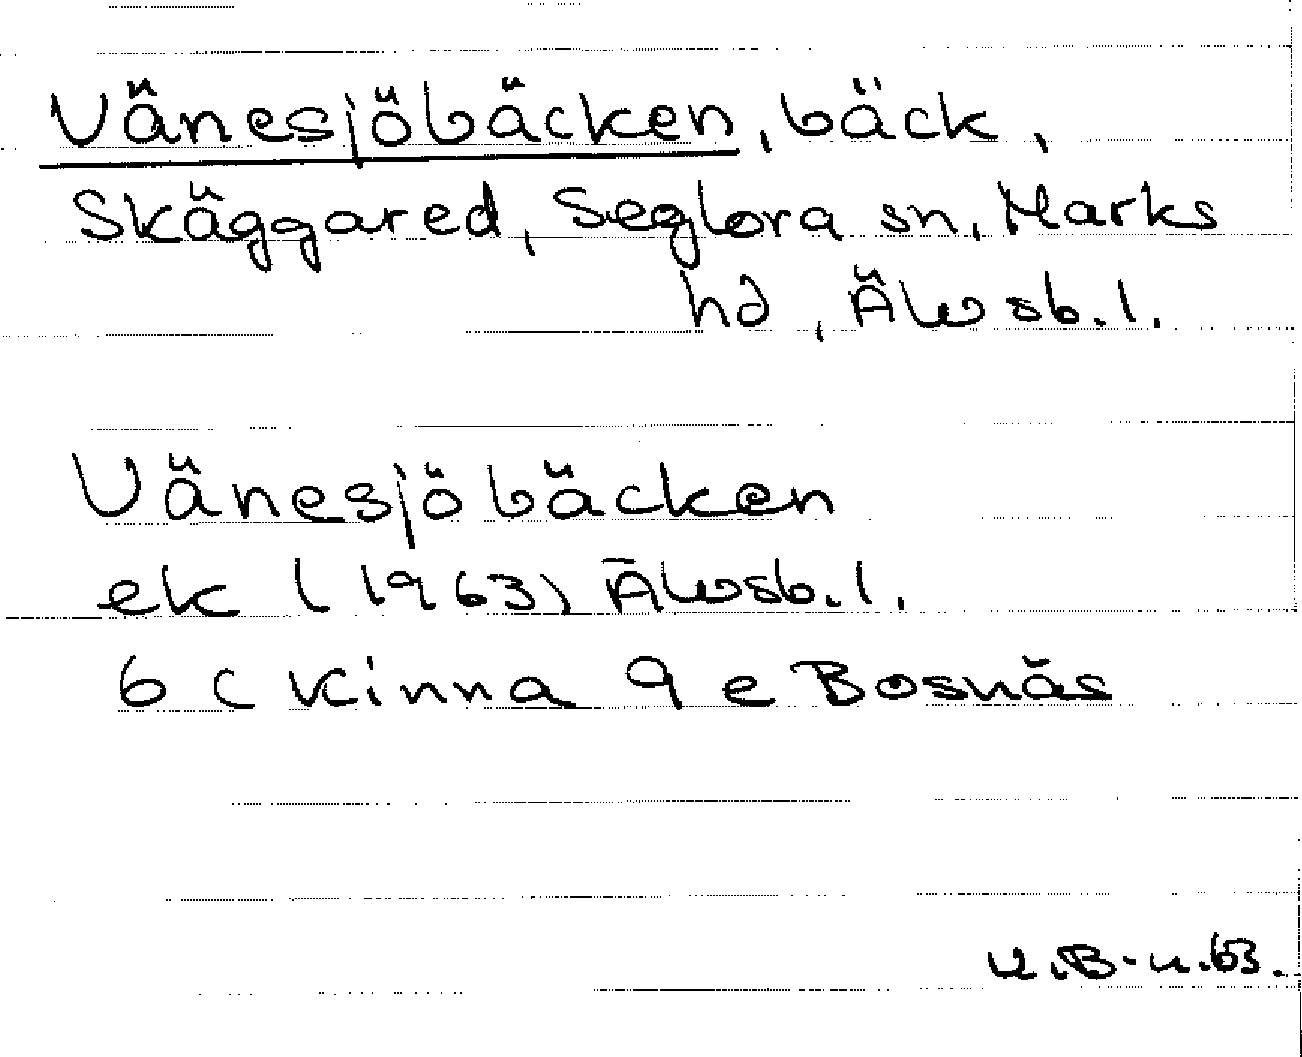 Vänesjöbäcken, bäck,
Skäggared, Seglora sn, Marks
hd, Älvsb. l.
Vänesjöbäcken
ek (1963) Älvsb. l.
6 C Kinna 9 e Bosnäs